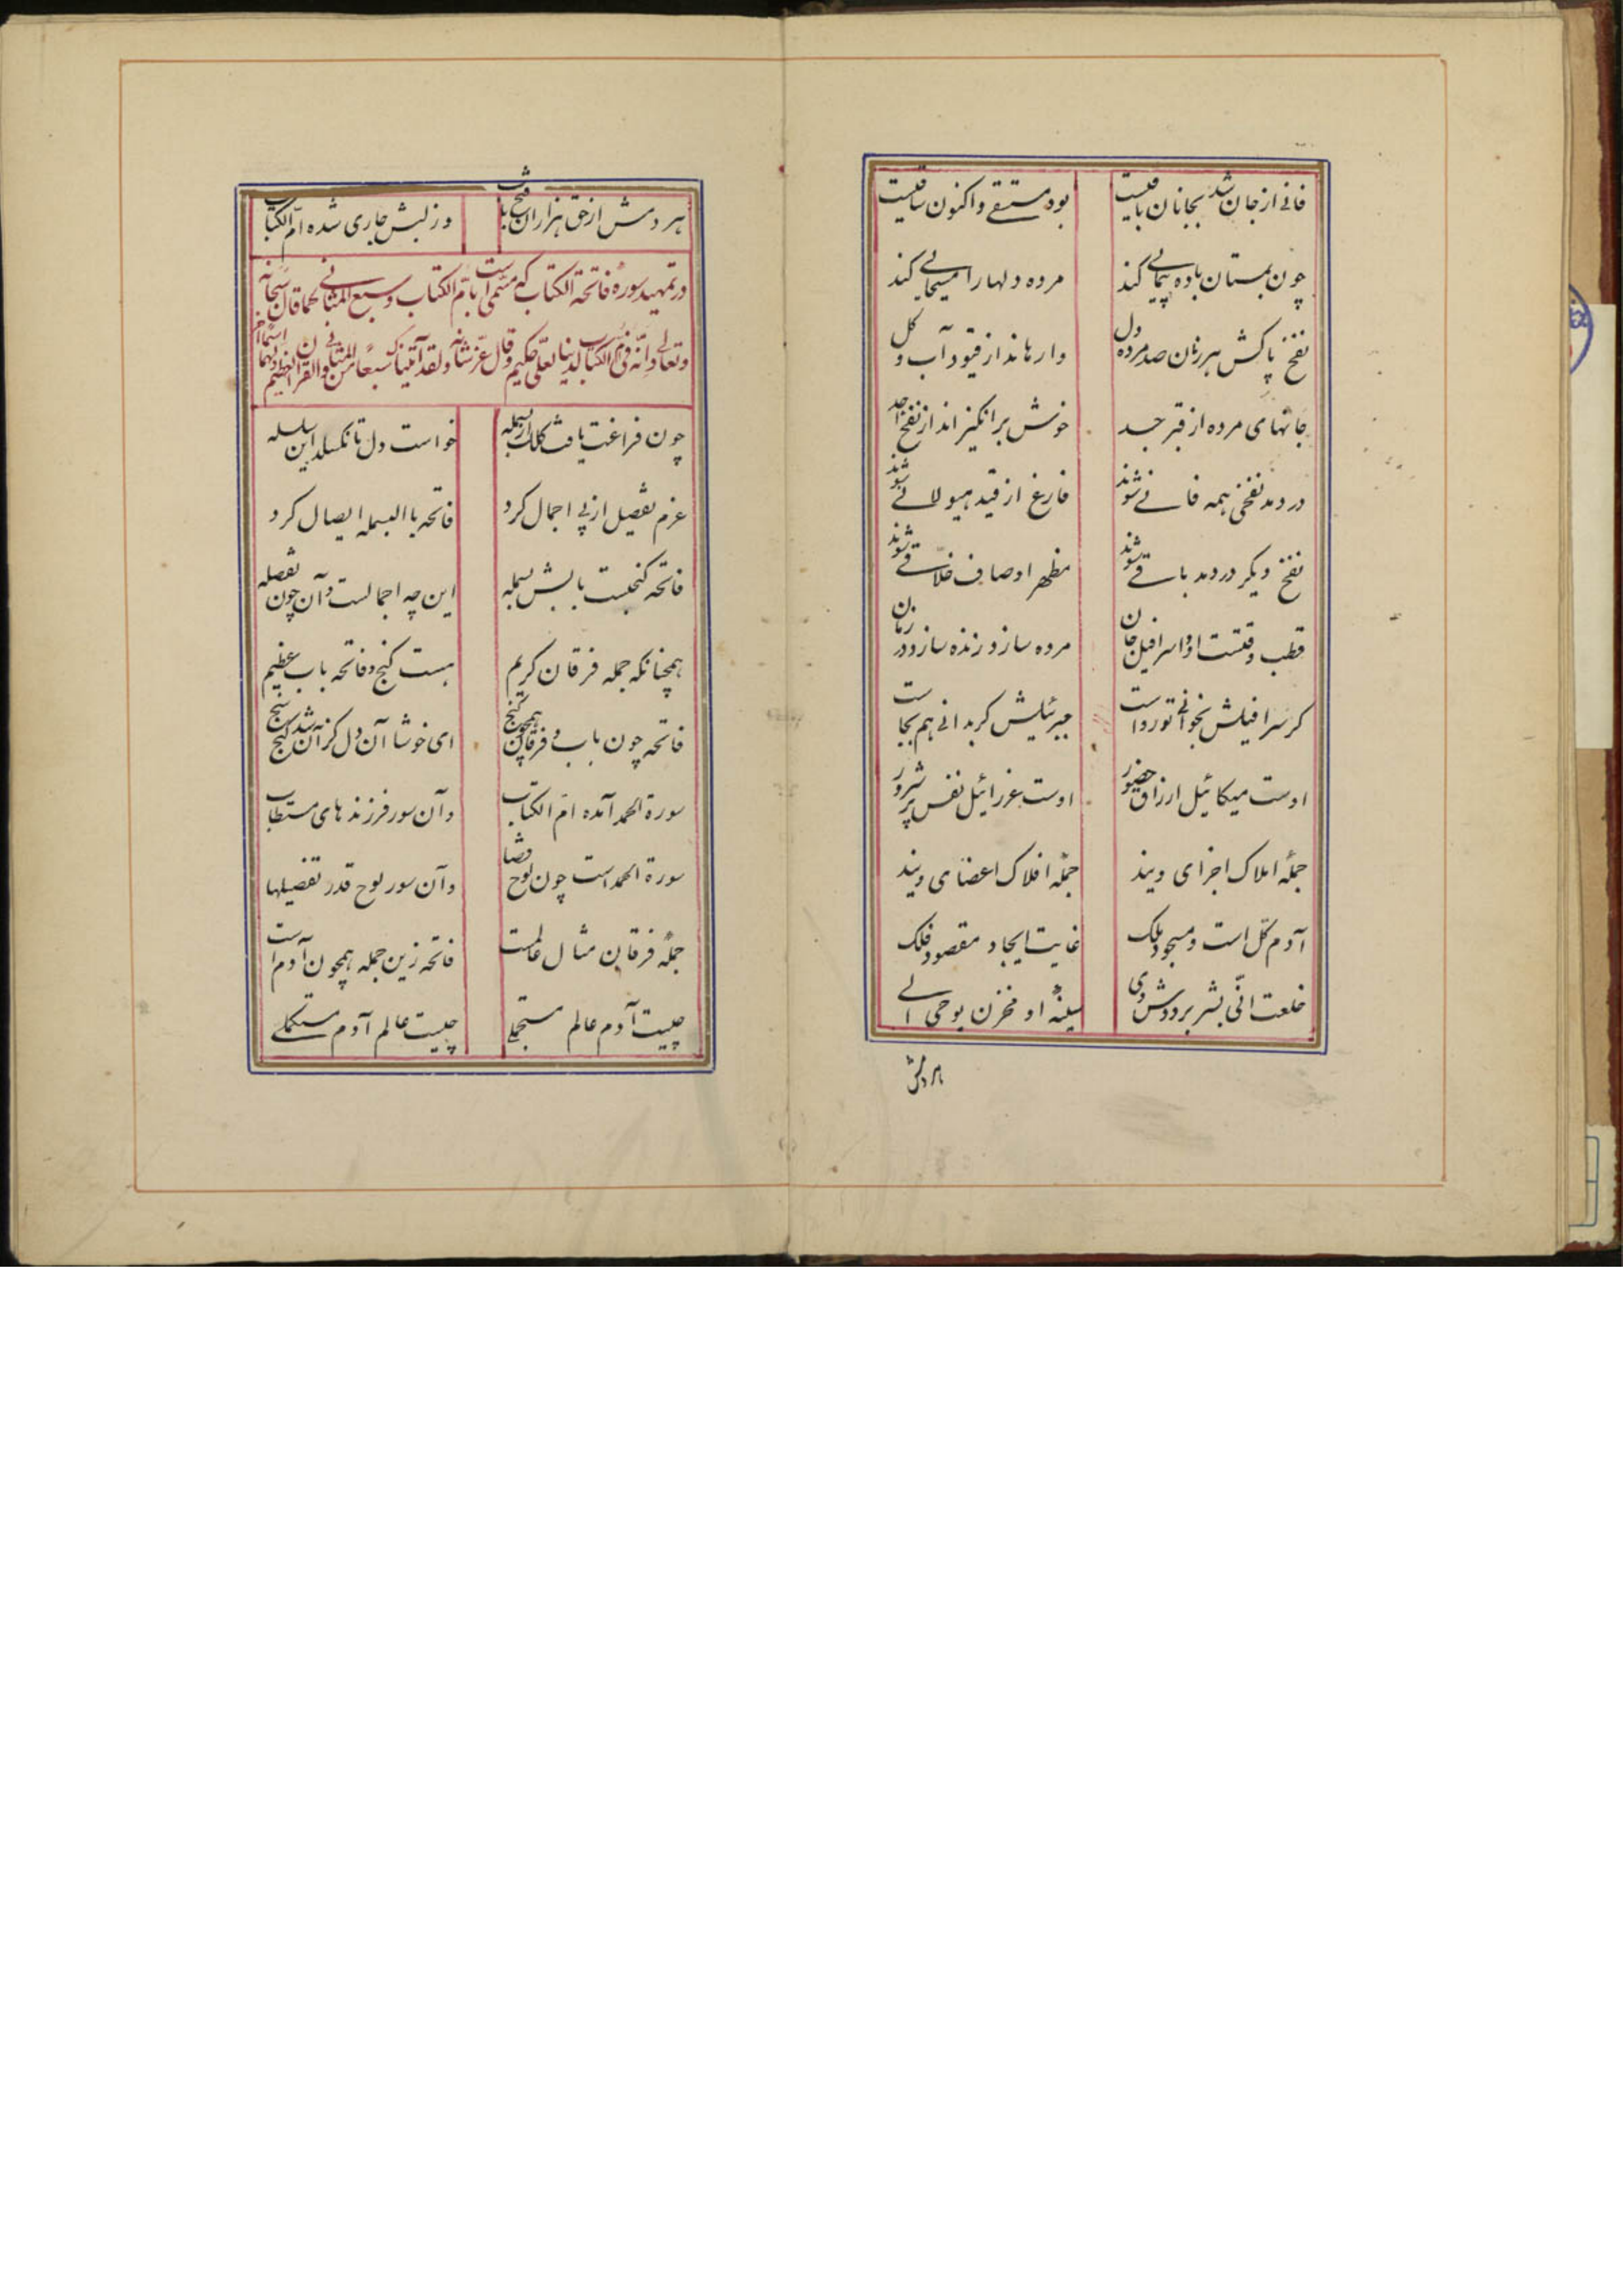 فانی از جان شد بجانان باقیست بود مستسقی و اکنون ساقیست
چون بمستان باده پیمائی کند مرده دلها را مسیحائی کند
نفخ پاکش هر زمان صد مرده دل وارهاند از قیود آب و گل
جانهای مرده از قبر جسد خوش برانگیزاند از نفخ احد
در دمد نفخی همه فانی شوند فارغ از قید هیولائی شوند
نفخ دیگر در دمد باقی شوند مظهر اوصاف خلاقی شوند
قطب وقتست او و اسرافیل جان مرده سازد زنده سازد در زمان
گر سرافیلش بخوانی تو رواست جبرئیلش گر بدانی هم بجاست
اوست میکائیل ارزاق حضور اوست عزرائیل نفس پر شرور
جملهٔ املاک اجزای ویند جملهٔ افلاک اعضای ویند
آدم کل است و مسجود ملک غایت ایجاد مقصود فلک
خلعت انّی بشر بر دوش وی سینهٔ او مخزن یوحی الی
هر دمش
هر دمش از حق هزاران فتح باب وز لبش جاری شده امّ الکتاب
در تمهید سورهٔ فاتحة الکتاب که مسمی است بامّ الکتاب و سبع المثانی کما قال سبحانه
وتعالی وانّه فی امّ الکتاب لدینا لعلّی حکیم وقال عزّ شانه ولقد آتیناک سبعاً من المثانی والقرآن العظیم
چون فراغت یافت کلک از بسمله خواست دل تا نگسلد این سلسله
عزم تفصیل از پی اجمال کرد فاتحه با البسمله ایصال کرد
فاتحه گنجست بابش بسمله این چه اجمالست و آن چون تفصله
همچنانکه جمله فرقان کریم هست گنج و فاتحه باب عظیم
فاتحه چون باب و فرقان همچو گنج ای خوشا آن دل کزان شد گنج سنج
سورة الحمد آمده امّ الکتاب وآن سور فرزندهای مستطاب
سورة الحمد است چون لوح قضا وآن سور لوح قدر تفصیلها
جملهٔ فرقان مثال عالمست فاتحه زین جمله همچون آدم است
چیست آدم عالم مستجملی چیست عالم آدم مستکملی